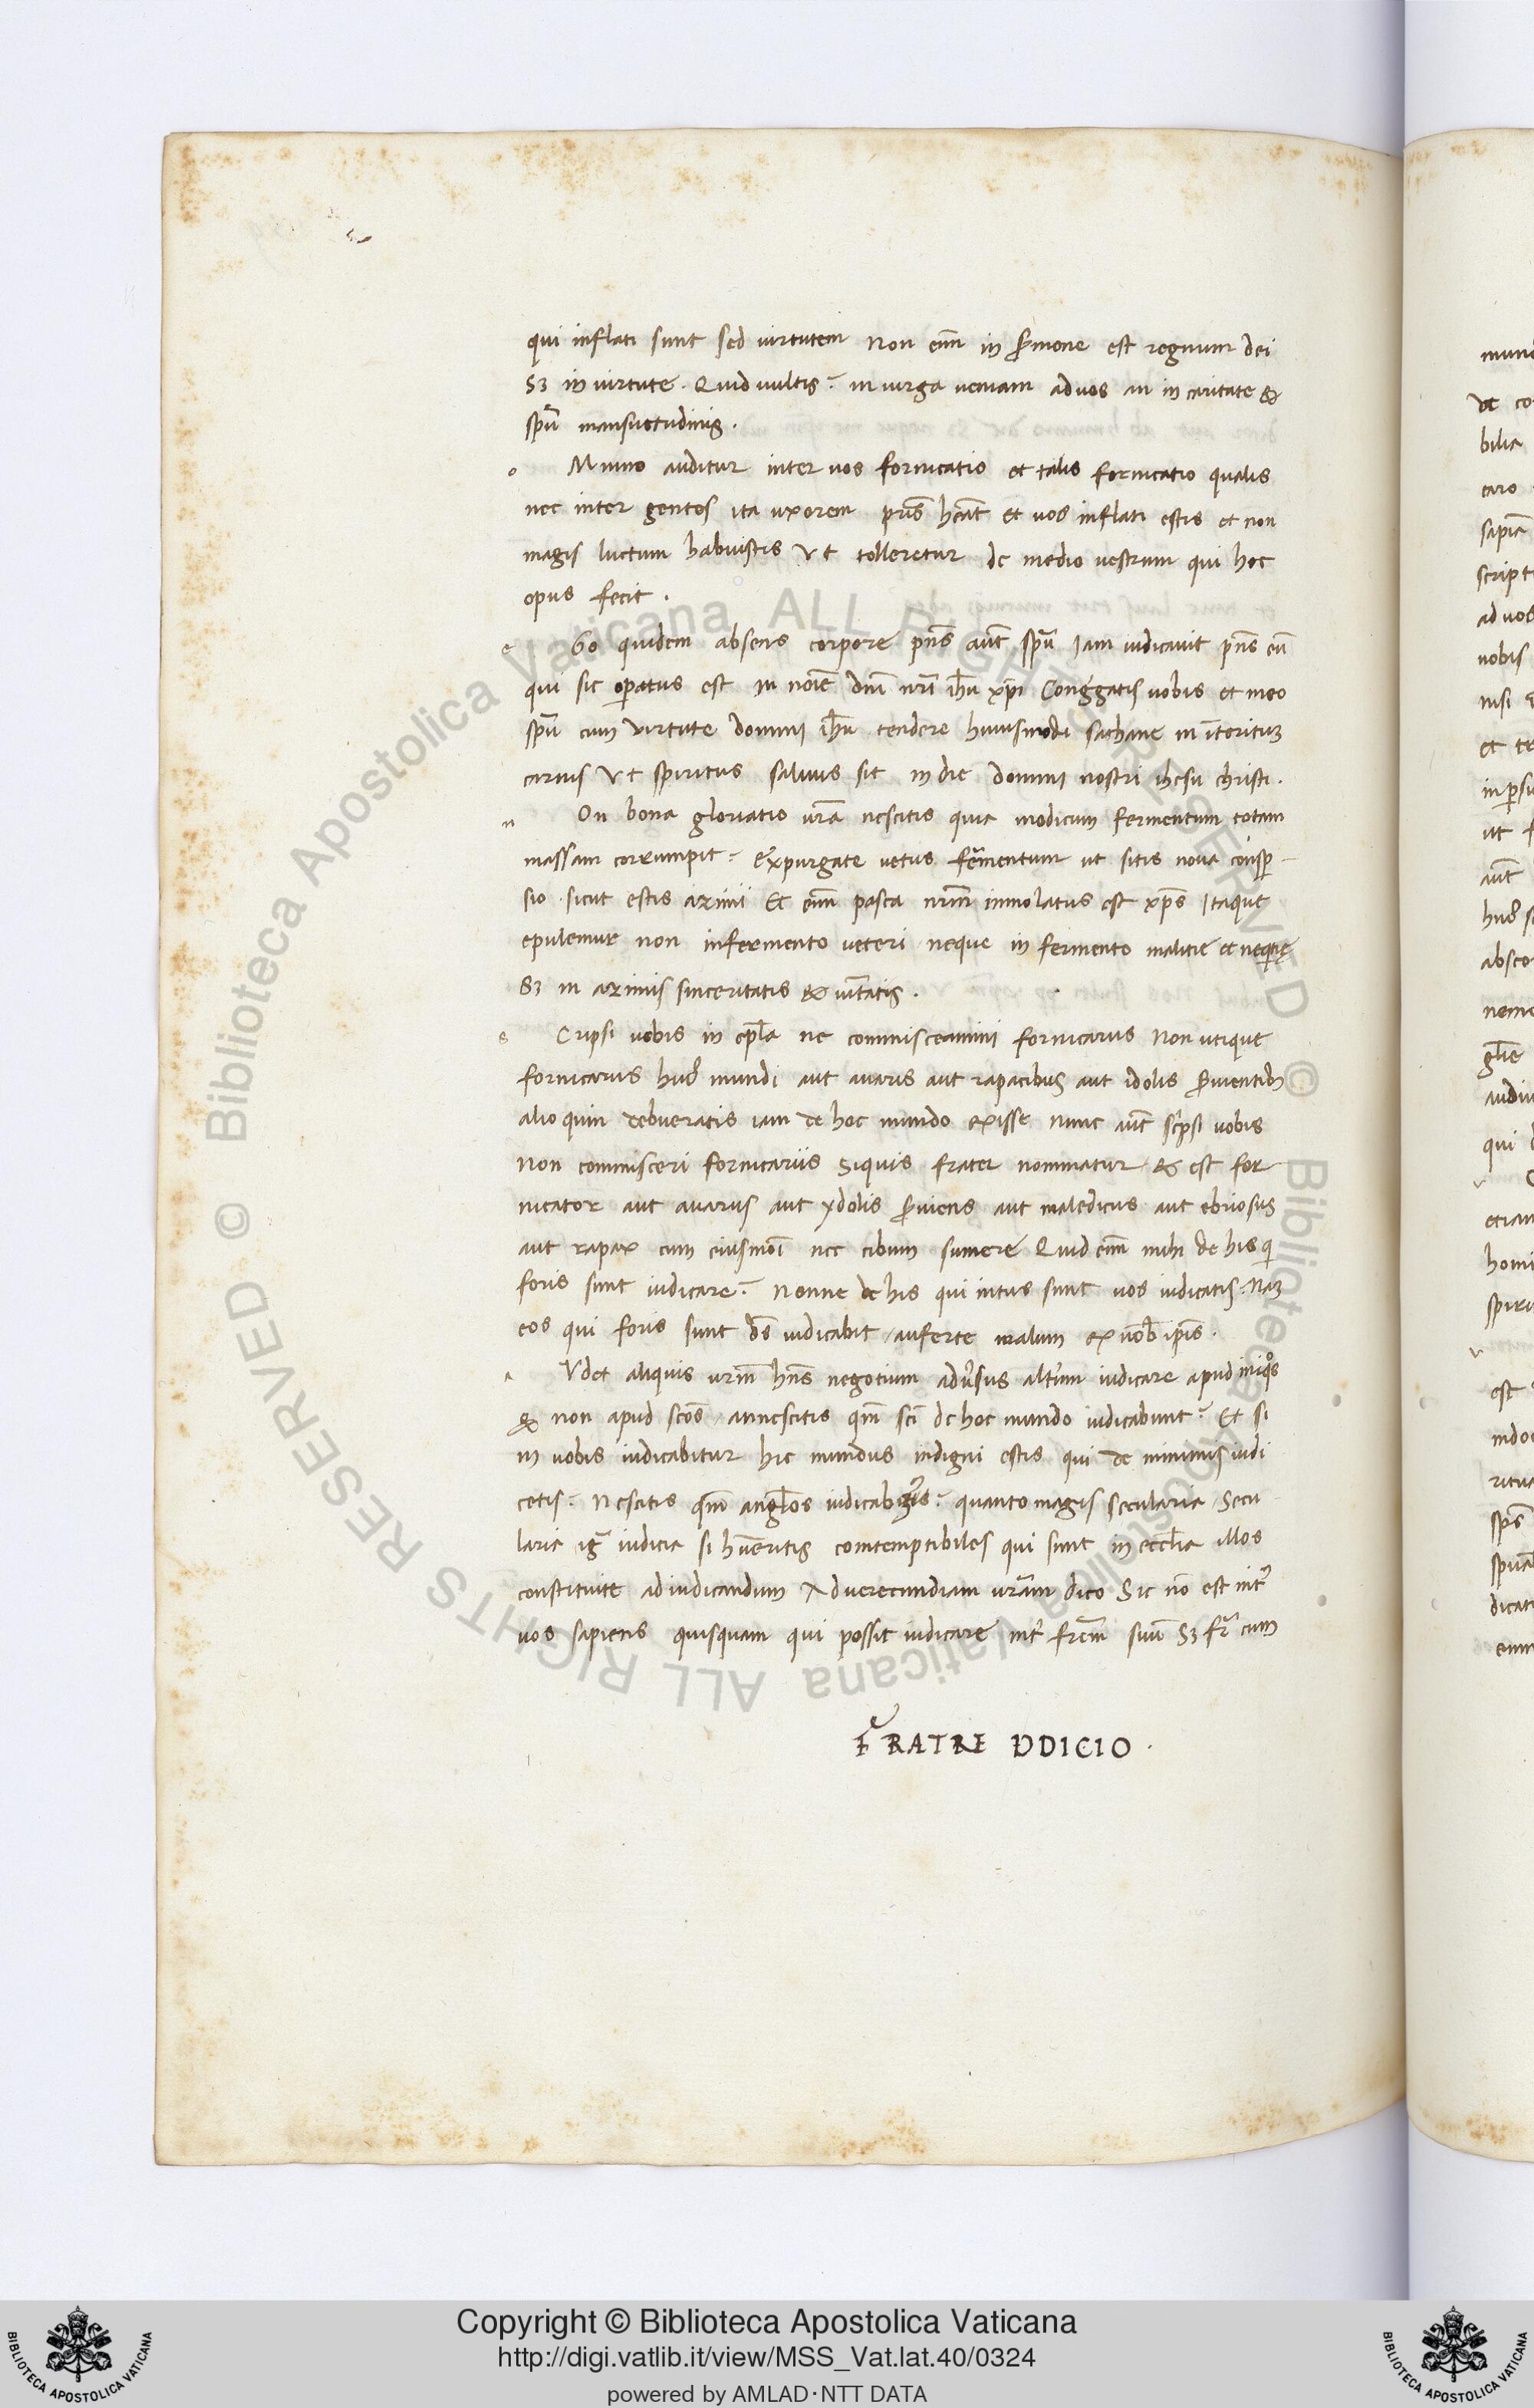 qui inflati sunt sed uirtutem Non em̄ in ẜmone est regnum dei
Sꝫ in uirtute. Quid uultis? in uirga ueniam ad uos an in caritate &
spū mansuetudinis.
o Mnino auditur inter uos fornicatio et talis fornicatio qualis
nec inter gentes ita uxorem pr̄is hēat et uos inflati estis et non
magis luctum habuistis Vt tolleretur de medio uestrum qui hoc
opus fecit.
e Go quidem absens corpore pn̄s aūt spū Iam iudicauit pn̄s eū
qui sic oꝑatus est In noīe dn̄i nr̄i ih̄u xp̄i Conggatis uobis et meo
spū cum virtute domini ih̄u tendere huiusmodi sathane in īteritum
carnis Vt spiritus saluus sit in die domini nostri ihesu christi.
n On bona gloriatio ur̄a nescitis quia modicum fermentum totam
massam corrumpit? Expurgate uetus fermentum ut sitis noua consꝑ
sio sicut estis azimi Et em̄ pasca nr̄m inmolatus est xp̄s Itaque
epulemur non infermento ueteri neque in fermento malitie et neqtię
Sꝫ in azimis sinceritatis & uītatis.
s Cripsi uobis in epl̄a ne commisceamini fornicariis Non utique
fornicariis huiꝰ mundi aut auaris aut rapacibus aut idolis ẜuientib;
alioquin debueratis iam de hoc mundo exisse Nunc aūt scrpsi uobis
Non commisceri fornicariis Siquis frater nominatur & est for
nicator aut auarus aut ydolis ẜuiens aut maledicus aut ebriosus
aut rapax cum eiusmōi nec cibum sumere Quid em̄ mihi de his q
foris sunt iudicare? Nonne de his qui intus sunt uos iudicatis. Naꝫ
eos qui foris sunt d̄s iudicabit / auferte malum ex uob̄ ip̄is.
a Vdet aliquis ur̄m hn̄s negotium aduꝰsus altꝰum iudicare apud iniqos
& non apud sc̄os / annescitis qm̄ sc̄i de hoc mundo iudicabunt? Et si
in uobis iudicabitur hic mundus indigni estis qui de minimis iudi
cetis? Nescitis qm̄ angl̄os iudicabimꝰ? quanto magis secularia / Secu
laria ig̃ iudicia si hūeritis comtemptibiles qui sunt in eccl̄ia illos
constituite ad iudicandum Ad uerecundiam ur̄am dico Sic nō est intꝰ
uos sapiens quisquam qui possit iudicare intꝰ fr̄em suū Sꝫ fr̄ cum
FRATRE VDICIO.
Copyright © Biblioteca Apostolica Vaticana
http://digi.vatlib.it/view/MSS_Vat.lat.40/0324
powered by AMLAD·NTT DATA